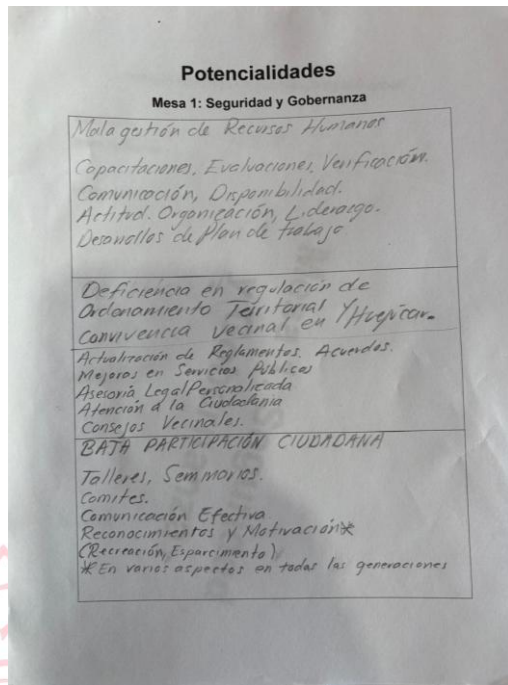 Potencialidades
Mesa 1: Seguridad y Gobernanza
Mala gestión de Recursos Humanos
Capacitaciones, Evaluaciones, Verificación.
Comunicación, Disponibilidad.
Actitud. Organización, Liderazgo.
Desarrollos de Plan de trabajo
Deficiencia en regulación de
Ordenamiento Territorial Y
Convivencia Vecinal en Huejúcar.
Actualización de Reglamentos, Acuerdos.
Mejoras en Servicios Públicos
Asesoría Legal Personalizada
Atención a la Ciudadanía
Consejos Vecinales.
BAJA PARTICIPACIÓN CIUDADANA
Talleres, Seminarios.
Comites.
Comunicación Efectiva
Reconocimientos y Motivación*
(Recreación, Esparcimento)
*En varios aspectos en todas las generaciones